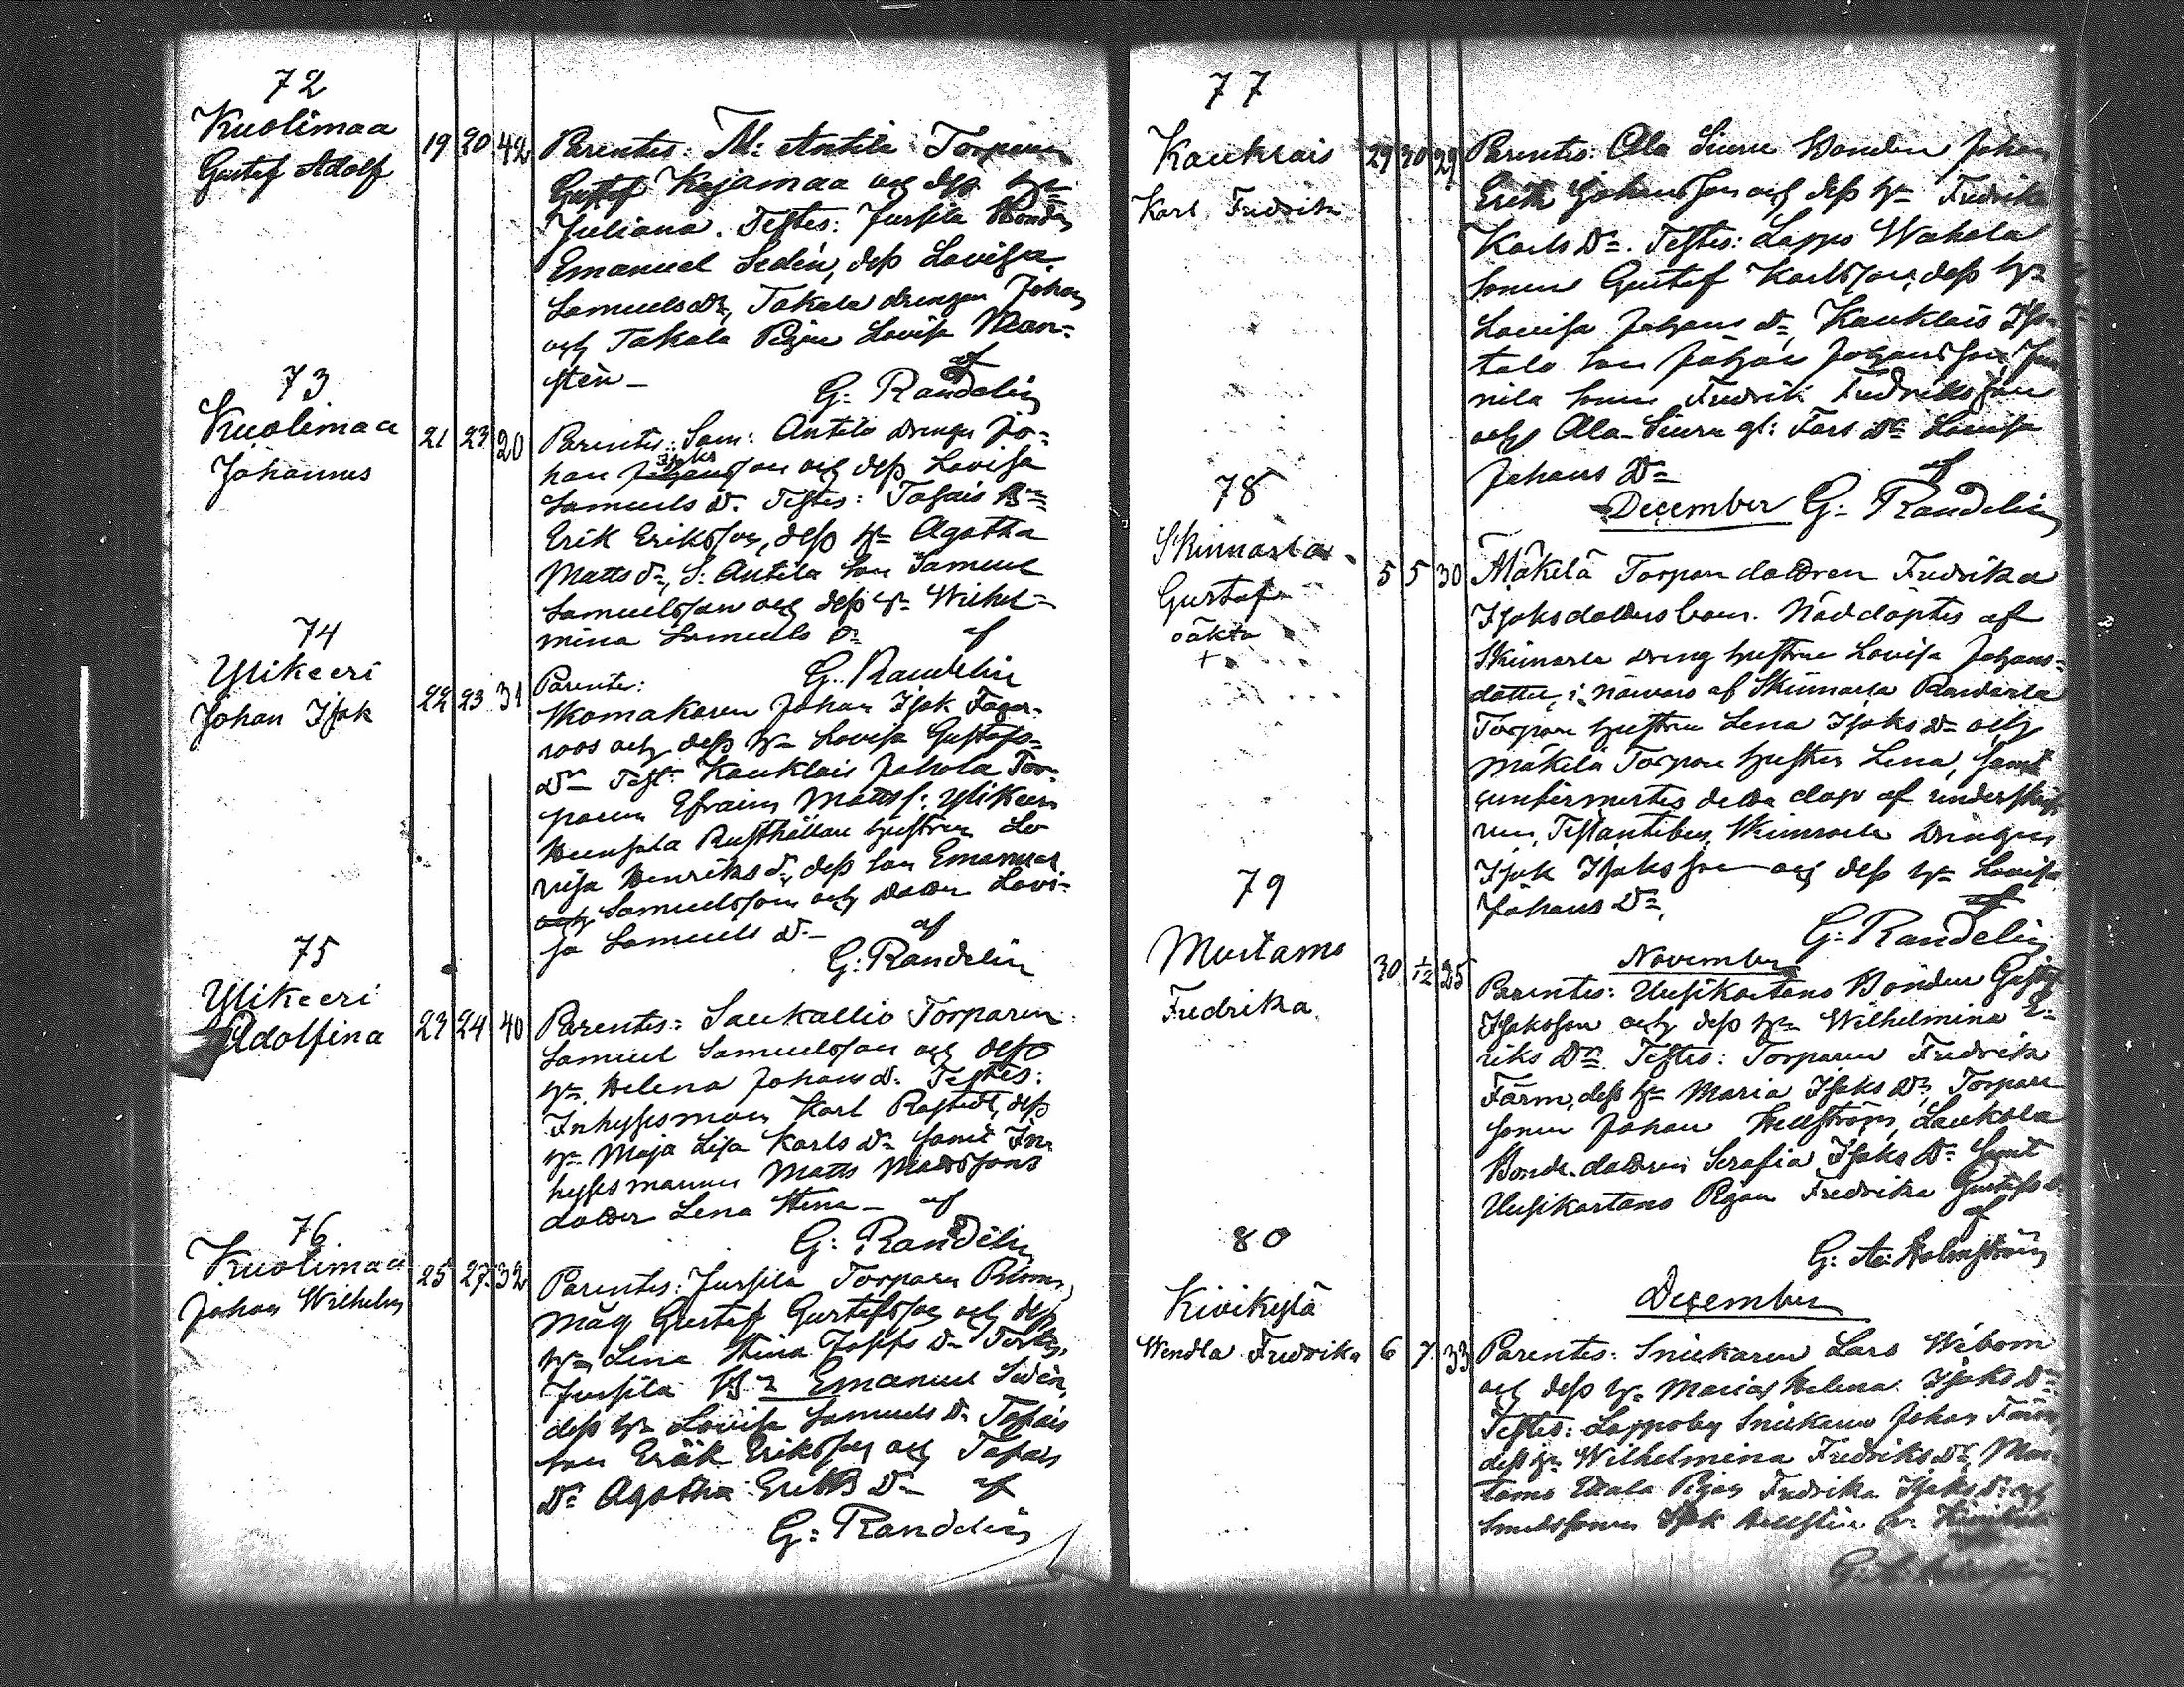 72
Kuolimaa
Gustaf Adolf
19 20 42
Parentes: M: Antila Torparen
Gustaf Kajamaa och dess hu
Juliana. Testes: Jussila Bonden
Emanuel Sedén, dess Lovisa
Samuelsdr, Takala drengen Johan
och Takala Pigan Lovisa Wean-
stén — af
G: Randelin
73
Kuolimaa
Johannes
21 23 20
Parentes: Sam: Antila drengen Jo-
han son och dess Lovisa
Samuels dr. Testes: Tafais Bn
Erik Eriksson, dess hu Agatha
Matts dr, S: Antila son Samuel
Samuelsson och dess hu Wilhel-
mina Samuels dr af
G. Randelin
74
Ylikeeri
Johan Isak
22 23 31
Parentes:
Skomakaren Johan Isak Fager-
roos och dess hu Lovisa Gustafs-
dr Test: Kauklais Jahola Tor-
paren Efraim Matts s: Ylikeeri
Rusthållare hustrun Lo
visa Henriks dr, dess son Emanuel
Samuelsson och dottren Lovi-
sa Samuels dr — af
G: Randelin
75
Ylikeeri
Adolfina
23 24 40
Parentes: Saukallio Torparen
Samuel Samuelsson och dess
hu Helena Johans dr. Testes:
Inhyses man Karl dess
hu Maja Lisa Karls dr samt In-
hyses mannen Matts Mattssons
dotter Lena Stina — af
G: Randelin
76
Kuolimaa
Johan Wilhelm
25 27 32
Parentes: Jussila Torparen
måg Gustaf Gustafsson och dess
hu Lena Stina dr Testes,
Jussila Bn Emanuel Sedén,
dess hu Lovisa Samuels dr Tafais
son Erik Eriksson och Tafais
dr Agatha Eriks dr af
G: Randelin
77
Kauklais
Karl Fredrik
29 30 29
Parentes: Ala Siuru Bonden Johan
Erik Johansson och dess hu Fredrika
Karls dr. Testes: Lappo Wahala
sonen Gustaf Karlsson, dess hu
Lovisa Johans dr, Kauklais Iso-
talo son Johan Johansson,
nila sonen Fredrik Fredriksson
och Ala-Siuru gl: Fars dr Lovisa
Johans dr af
G: Randelin
December
78
Skinnarla
Gustaf
oäkta
+
5 5 30
Mäkilä Torpare dottren Fredrika
Isaksdotters barn. Nöddöptes af
Skinnarla dreng hustrun Lovisa Johans-
dotter, i närvaro af Skinnarla
Torpare hustrun Lena Isaks dr och
Mäkilä Torpare hustru Lena, samt
confirmertes detta dop af underskrif-
ven, Testantibus, Skinnarla Drengen
Isak Isaksson och dess hu Lovisa
Johans dr, af
G: Randelin
November
79
Mustamo
Fredrika
30 1/12 25
Parentes: Uusikartano Bonden Gustaf
Isaksson och dess hu Wilhelmina E-
riks dr. Testes: Torparen Fredrik
Färm, dess hu Maria Isaks dr, Torpare
sonen Johan Hellström, Laukola
Bonde dottren Serafia Isaks dr samt
Uusikartano Pigan Fredrika Gustafs dr
af
G: A: Holmström
December
80
Kivikylä
Wendla Fredrika
6 7 33
Parentes: Snickaren Lars Wibom
och dess hu Maria Helena Isaks dr
Testes: Lappoby Snickaren Johan Färm,
dess hu Wilhelmina Fredriks dr, Mus-
tamo Pigan Fredrika Isaks dr och
Smedssonen Isak